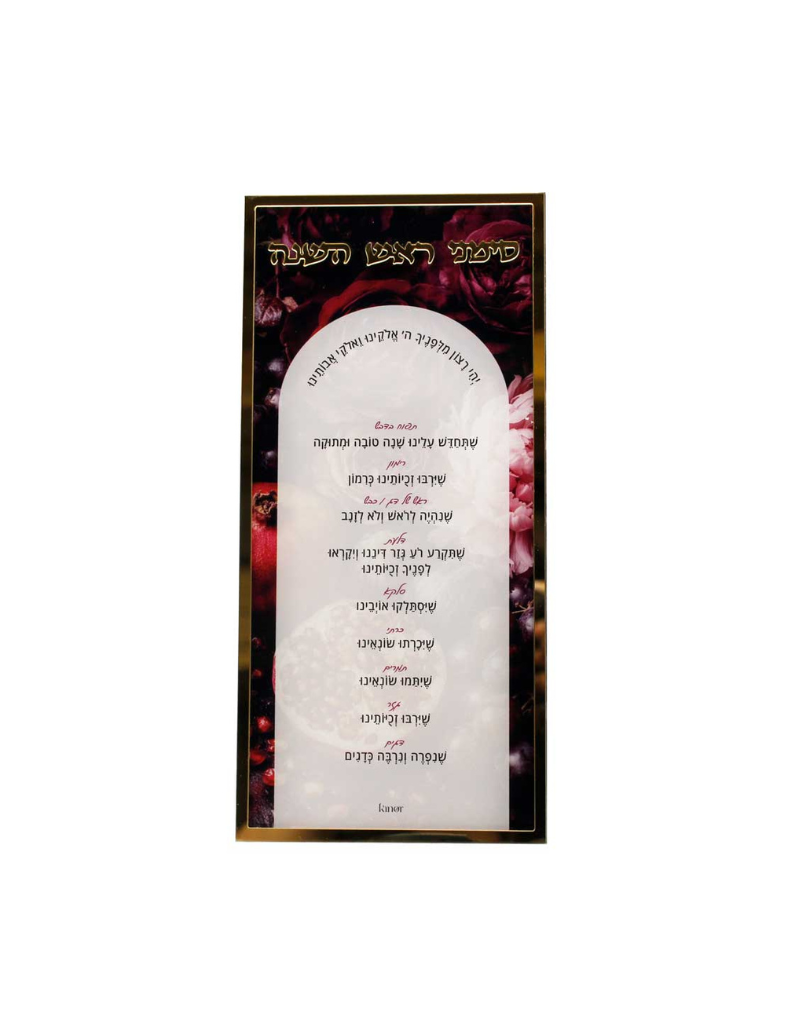 סימני ראש השנה
יְהִי רָצוֹן מִלְּפָנֶיךָ ה' אֱלֹקֵינוּ וֵאלֹקֵי אֲבוֹתֵינוּ
תפוח בדבש
שֶׁתְּחַדֵּשׁ עָלֵינוּ שָׁנָה טוֹבָה וּמְתוּקָה
רימון
שֶׁיִּרְבּוּ זְכֻיּוֹתֵינוּ כְּרִמּוֹן
ראש של דג / כבש
שֶׁנִּהְיֶה לְרֹאשׁ וְלֹא לְזָנָב
דלעת
שֶׁתִּקְרַע רֹעַ גְּזַר דִּינֵנוּ וְיִקָּרְאוּ
לְפָנֶיךָ זְכֻיּוֹתֵינוּ
סלקא
שֶׁיִּסְתַּלְּקוּ אוֹיְבֵינוּ
כרתי
שֶׁיִּכָּרְתוּ שׂוֹנְאֵינוּ
תמרים
שֶׁיִּתַּמּוּ שׂוֹנְאֵינוּ
גזר
שֶׁיִּרְבּוּ זְכֻיּוֹתֵינוּ
דגים
שֶׁנִּפְרֶה וְנִרְבֶּה כְּדָגִים
kinor